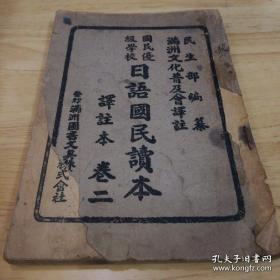 民生部編纂
滿洲文化普及會譯註
國民優級學校
日語國民讀本
譯註本 卷二
發行 滿洲圖書文具株式會社
孔夫子旧书网